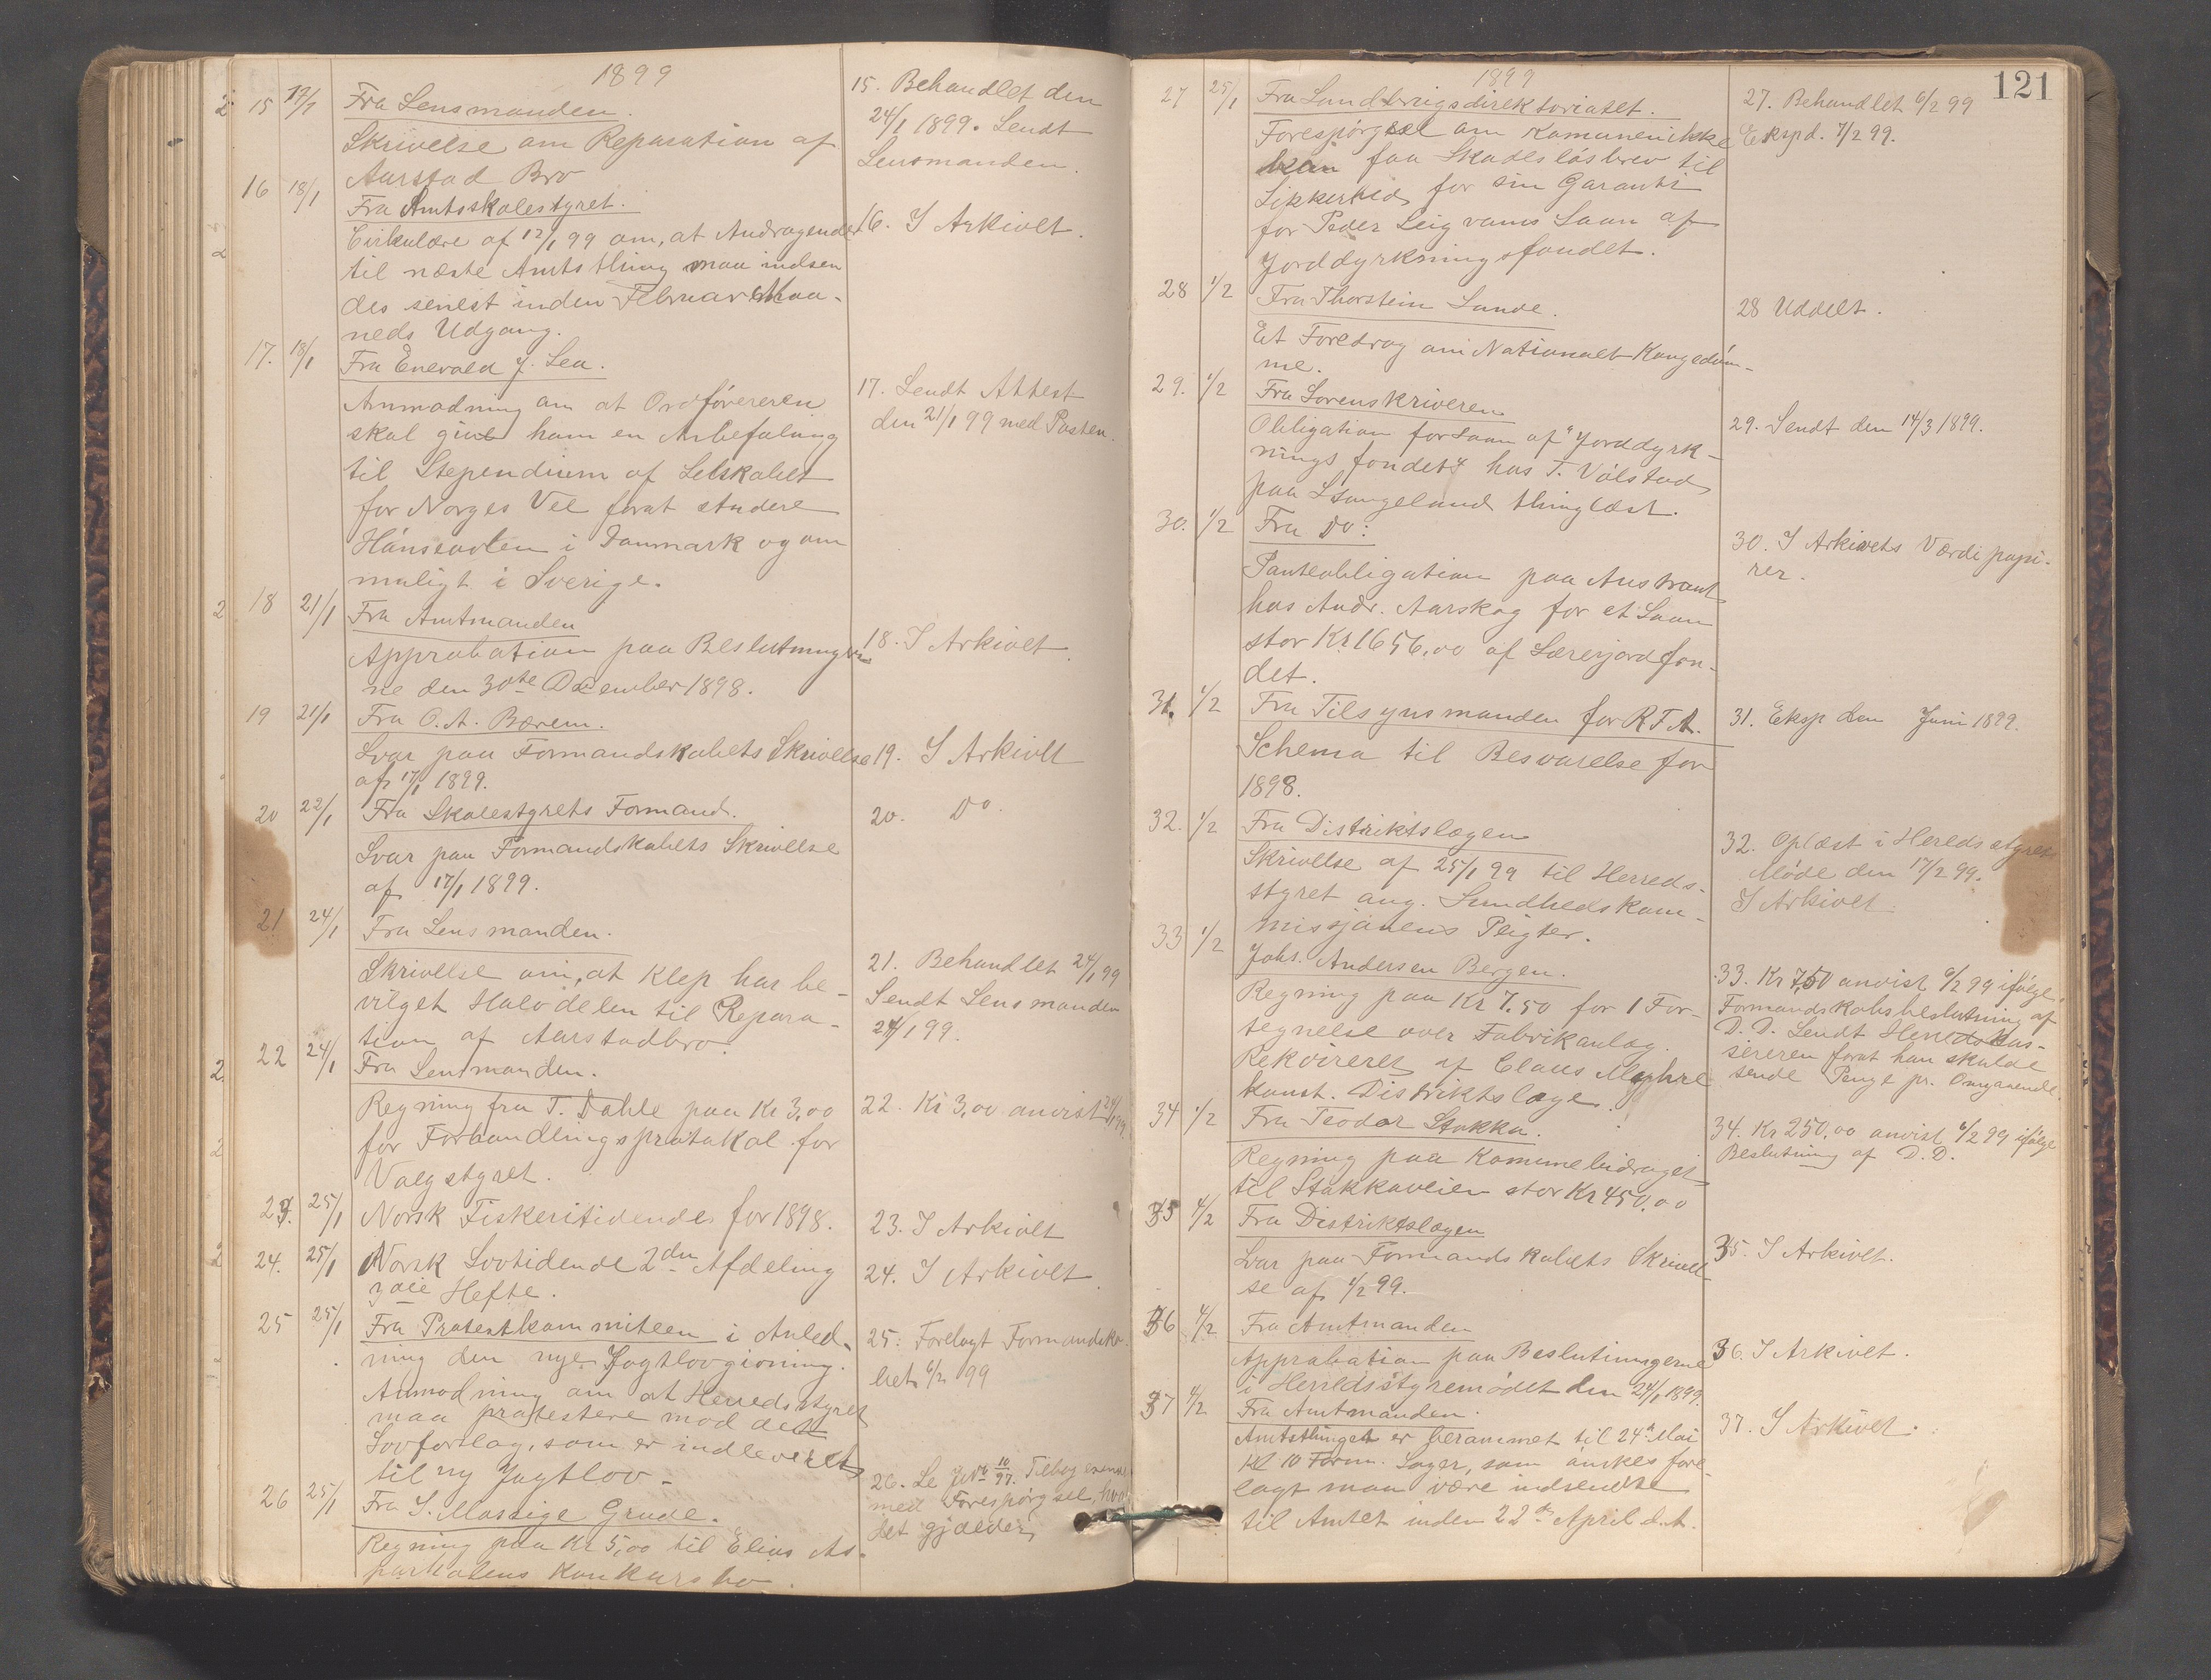 1899
15 17/1 Fra Lensmanden.
Skrivelse om Reparation af
Aarstad Bro
15. Behandlet den
24/1 1899. Sendt
Lensmanden.
16 18/1 Fra Amtsskolestyret.
Cirkulære af 12/1 99 om, at Andragender
til næste Amtsthing maa indsen
des senest inden Februar Maa-
neds Udgang.
16. I Arkivet.
17. 18/1 Fra Enevald J. Lea.
Anmodning om at Ordføreren
skal give ham en Anbefaling
til Stependium af Selskabet
for Norges Vel forat studere
Hønseavlen i Danmark og om
muligt i Sverige.
17. Sendt Attest
den 21/1 99 med Posten.
18 21/1 Fra Amtmanden
Approbation paa Beslutninger
ne den 30te December 1898.
18. I Arkivet.
19 21/1 Fra O. A. Bærem.
Svar paa Formandskabets Skrivelse
af 17/1 1899.
19. I Arkivet
20 22/1 Fra Skolestyrets Formand.
Svar paa Formandskabets Skrivelse
af 17/1 1899.
20. Do.
21 24/1 Fra Lensmanden.
Skrivelse om, at Klep har be-
vilget Halvdelen til Repara-
tion af Aarstadbro.
21. Behandlet 24/1 99
Sendt Lensmanden
24/1 99.
22 24/1 Fra Lensmanden.
Regning fra T. Dahle paa Kr 3,00
for Forhandlingsprotokol for
Valgstyret.
22. Kr 3,00 anvist 24/1 99
23. 25/1 Norsk Fiskeritidende for 1898.
23. I Arkivet
24. 25/1 Norsk Lovtidende 2den Afdeling
3die Hefte.
24. I Arkivet
25 25/1 Fra Protestkommiteen i Anled-
ning den nye Jagtlovgivning.
Anmodning om at Herredsstyret
maa protestere mod det
Lovforslag, som er indleveret
til ny Jagtlov.
25. Forelagt Formandska-
bet 6/2 99
26 25/1 Fra S. Massige Grude.
Regning paa Kr 5,00 til Elias As-
parkalens Konkursbo.
26. Se 10/97. Tilbag
med Forespørgsel, hvad
det gjælder
121
1899
27 25/1 Fra Landbrugsdirektoriatet.
Forespørgsel om Komunen ikke
kan faa Skadesløsbrev til
Sikkerhed for sin Garanti
for Peder Leigvams Laan af
Jorddyrkningsfondet.
27. Behandlet 6/2 99
Ekspd. 7/2 99.
28 1/2 Fra Thorstein Lunde.
Et Foredrag om Nationalt Kongedøm-
me.
28 Uddelt.
29. 1/2 Fra Sorenskriveren
Obligation for Laan af "Jorddyrk-
ningsfondet" hos T. Vølstad
paa Stangeland thinglæst.
29. Sendt den 14/3 1899.
30. 1/2 Fra Do:
Panteobligation paa Austraat
hos Andr. Aarskog for et Laan
stor Kr 1656,00 af Lærerjordfon-
det.
30. I Arkivets Værdipapi-
rer.
31. 1/2 Fra Tilsynsmanden for R F A.
Schema til Besvarelse for
1898.
31. Eksp den Juni 1899.
32. 1/2 Fra Distriktslægen
Skrivelse af 25/1 99 til Herreds-
styret ang. Sundhedskom-
missjonens Pligter.
32. Oplæst i Heredsstyrets
Møde den 17/2 99.
I Arkivet
33 1/2 Johs. Andersen Bergen.
Regning paa Kr 7,50 for 1 For-
tegnelse over Fabrikanlæg.
Rekvireret af Claus Myhre
konst. Distriktslæge.
33. Kr 7,50 anvist 6/2 99 ifølge
Formandskabsbeslutning af
D. D. Sendt Herredskas-
sereren forat han skulde
sende Penge pr. Omgaaende.
34 1/2 Fra Teodor Stokka.
Regning paa Komunebidraget
til Stokkaveien stor Kr 450,00
34. Kr 250,00 anvist 6/2 99 ifølge
Beslutning af D. D.
35 4/2 Fra Distriktslægen
Svar paa Formandskabets Skrivel-
se af 1/2 99.
35. I Arkivet.
36 4/2 Fra Amtmanden
Approbation paa Beslutningerne
i Herredsstyremødet den 24/1 1899.
36. I Arkivet.
37 4/2 Fra Amtmanden.
Amtsthinget er berammet til 24de Mai
Kl 10 Form. Sager, som ønskes fore-
lagt maa være indsendte
til Amtet inden 22de April d.A.
37. I Arkivet.